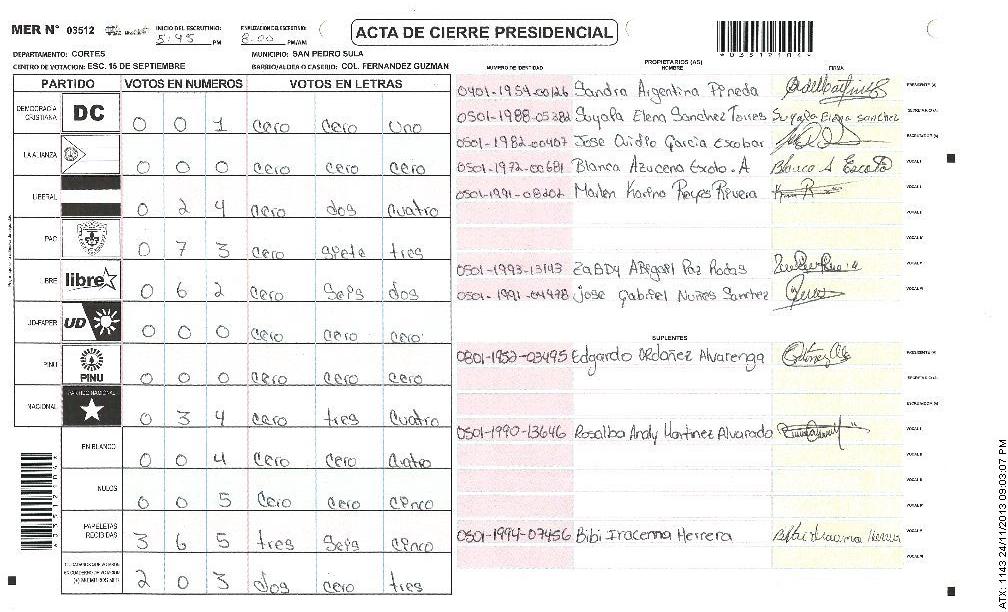 MER Nº 03512 INICIO DEL ESCRUTINIO: 5:45 PM FINALIZACION DEL ESCRUTINIO: 8:00 PM/AM ACTA DE CIERRE PRESIDENCIAL
DEPARTAMENTO: CORTES MUNICIPIO: SAN PEDRO SULA
CENTRO DE VOTACION: ESC. 15 DE SEPTIEMBRE BARRIO/ALDEA O CASERIO: COL. FERNANDEZ GUZMAN
PARTIDO VOTOS EN NUMEROS VOTOS EN LETRAS
DEMOCRACIA CRISTIANA DC 0 0 1 cero cero uno
LA ALIANZA 0 0 0 cero cero cero
LIBERAL 0 2 4 cero dos cuatro
PAC 0 7 3 cero siete tres
LIBRE libre 0 6 2 cero seis dos
UD-FAPER UD 0 0 0 cero cero cero
PINU PINU 0 0 0 cero cero cero
NACIONAL PARTIDO NACIONAL 0 3 4 cero tres cuatro
EN BLANCO 0 0 4 cero cero cuatro
NULOS 0 0 5 cero cero cinco
PAPELETAS RECIBIDAS 3 6 5 tres seis cinco
CIUDADANOS QUE VOTARON EN CUADERNO DE VOTACION (+) MIEMBROS MER 2 0 3 dos cero tres
PROPIETARIOS (AS)
NUMERO DE IDENTIDAD NOMBRE FIRMA
0401-1954-00126 Sandra Argentina Pineda PRESIDENTE (A)
0501-1988-05282 Suyapa Elena Sanchez Torres Suyapa Elena Sanchez SECRETARIO (A)
0501-1982-00407 Jose Ovidio Garcia Escobar ESCRUTADOR (A)
0501-1972-00681 Blanca Azucena Escoto. A Blanca A Escoto VOCAL I
0501-1991-08202 Marlen Karina Reyes Rivera VOCAL II
0501-1993-13143 Zabdy Abigail Paz Rodas VOCAL V
0501-1991-04478 jose Gabriel Nuñes Sanchez VOCAL VI
SUPLENTES
0801-1952-03495 Edgardo Ordoñez Alvarenga PRESIDENTE (A)
SECRETARIO (A)
ESCRUTADOR (A)
0501-1990-13646 Rosalba Andy Martinez Alvarado VOCAL I
0501-1994-07456 Bibi Iracema Herrera Bibi Iracema Herrera VOCAL V
VOCAL VI
ATX: 1143 24/11/2013 09:03:07 PM